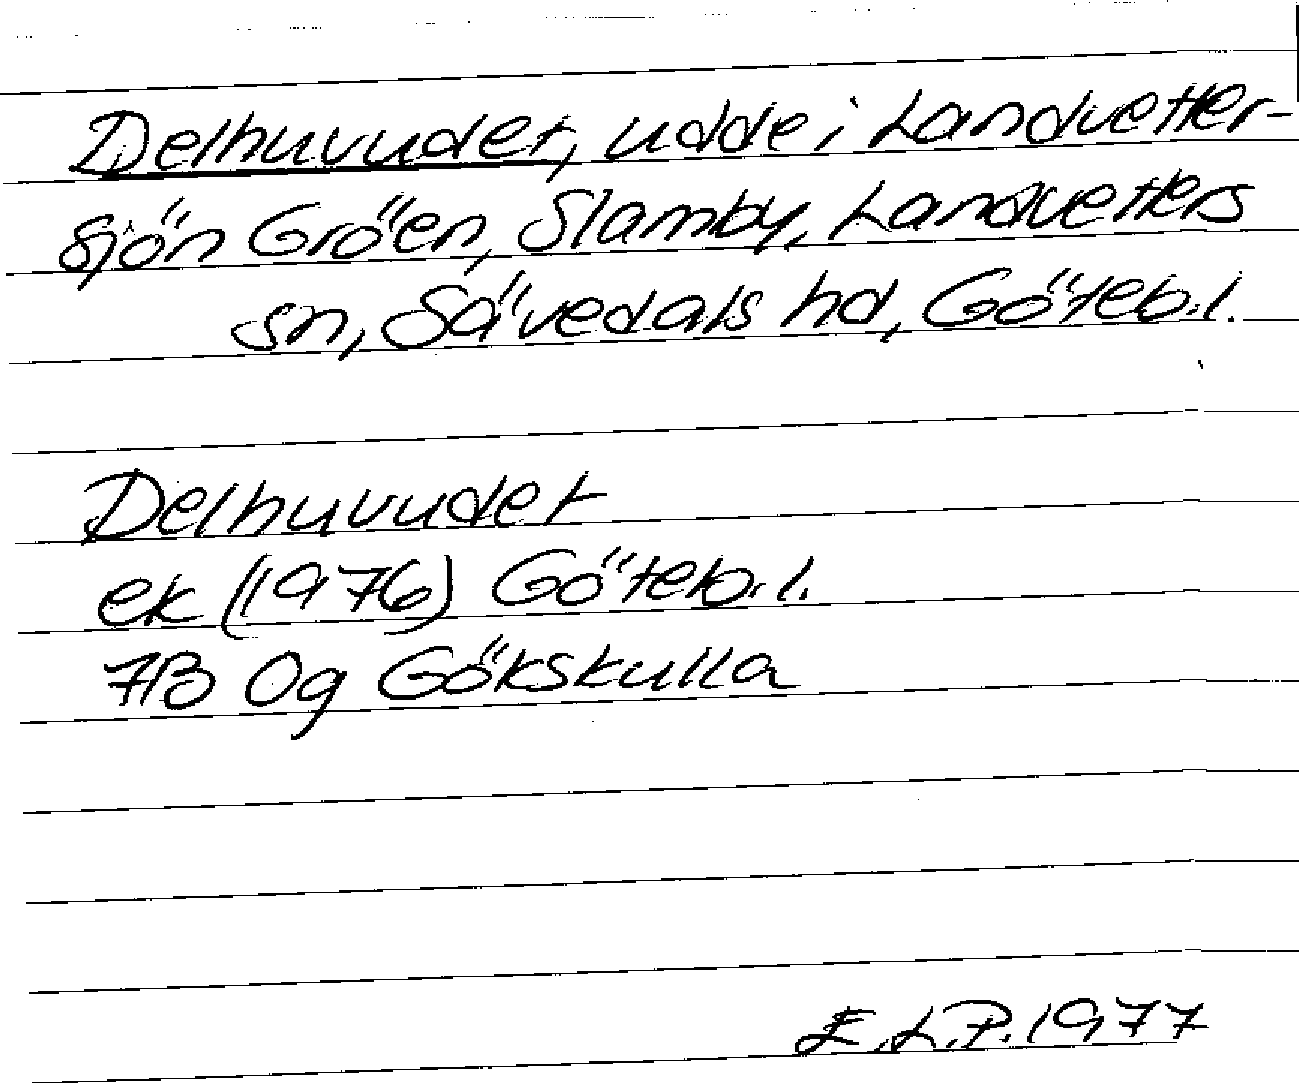 Delhuvudet, udde i Landvetter-
sjön Gröen, Slamby, Landvetters
sn, Sävedals hd, Göteb.l.
Delhuvudet
ek (1976) Göteb.l.
7B 0g Gökskulla
E.L.P. 1977